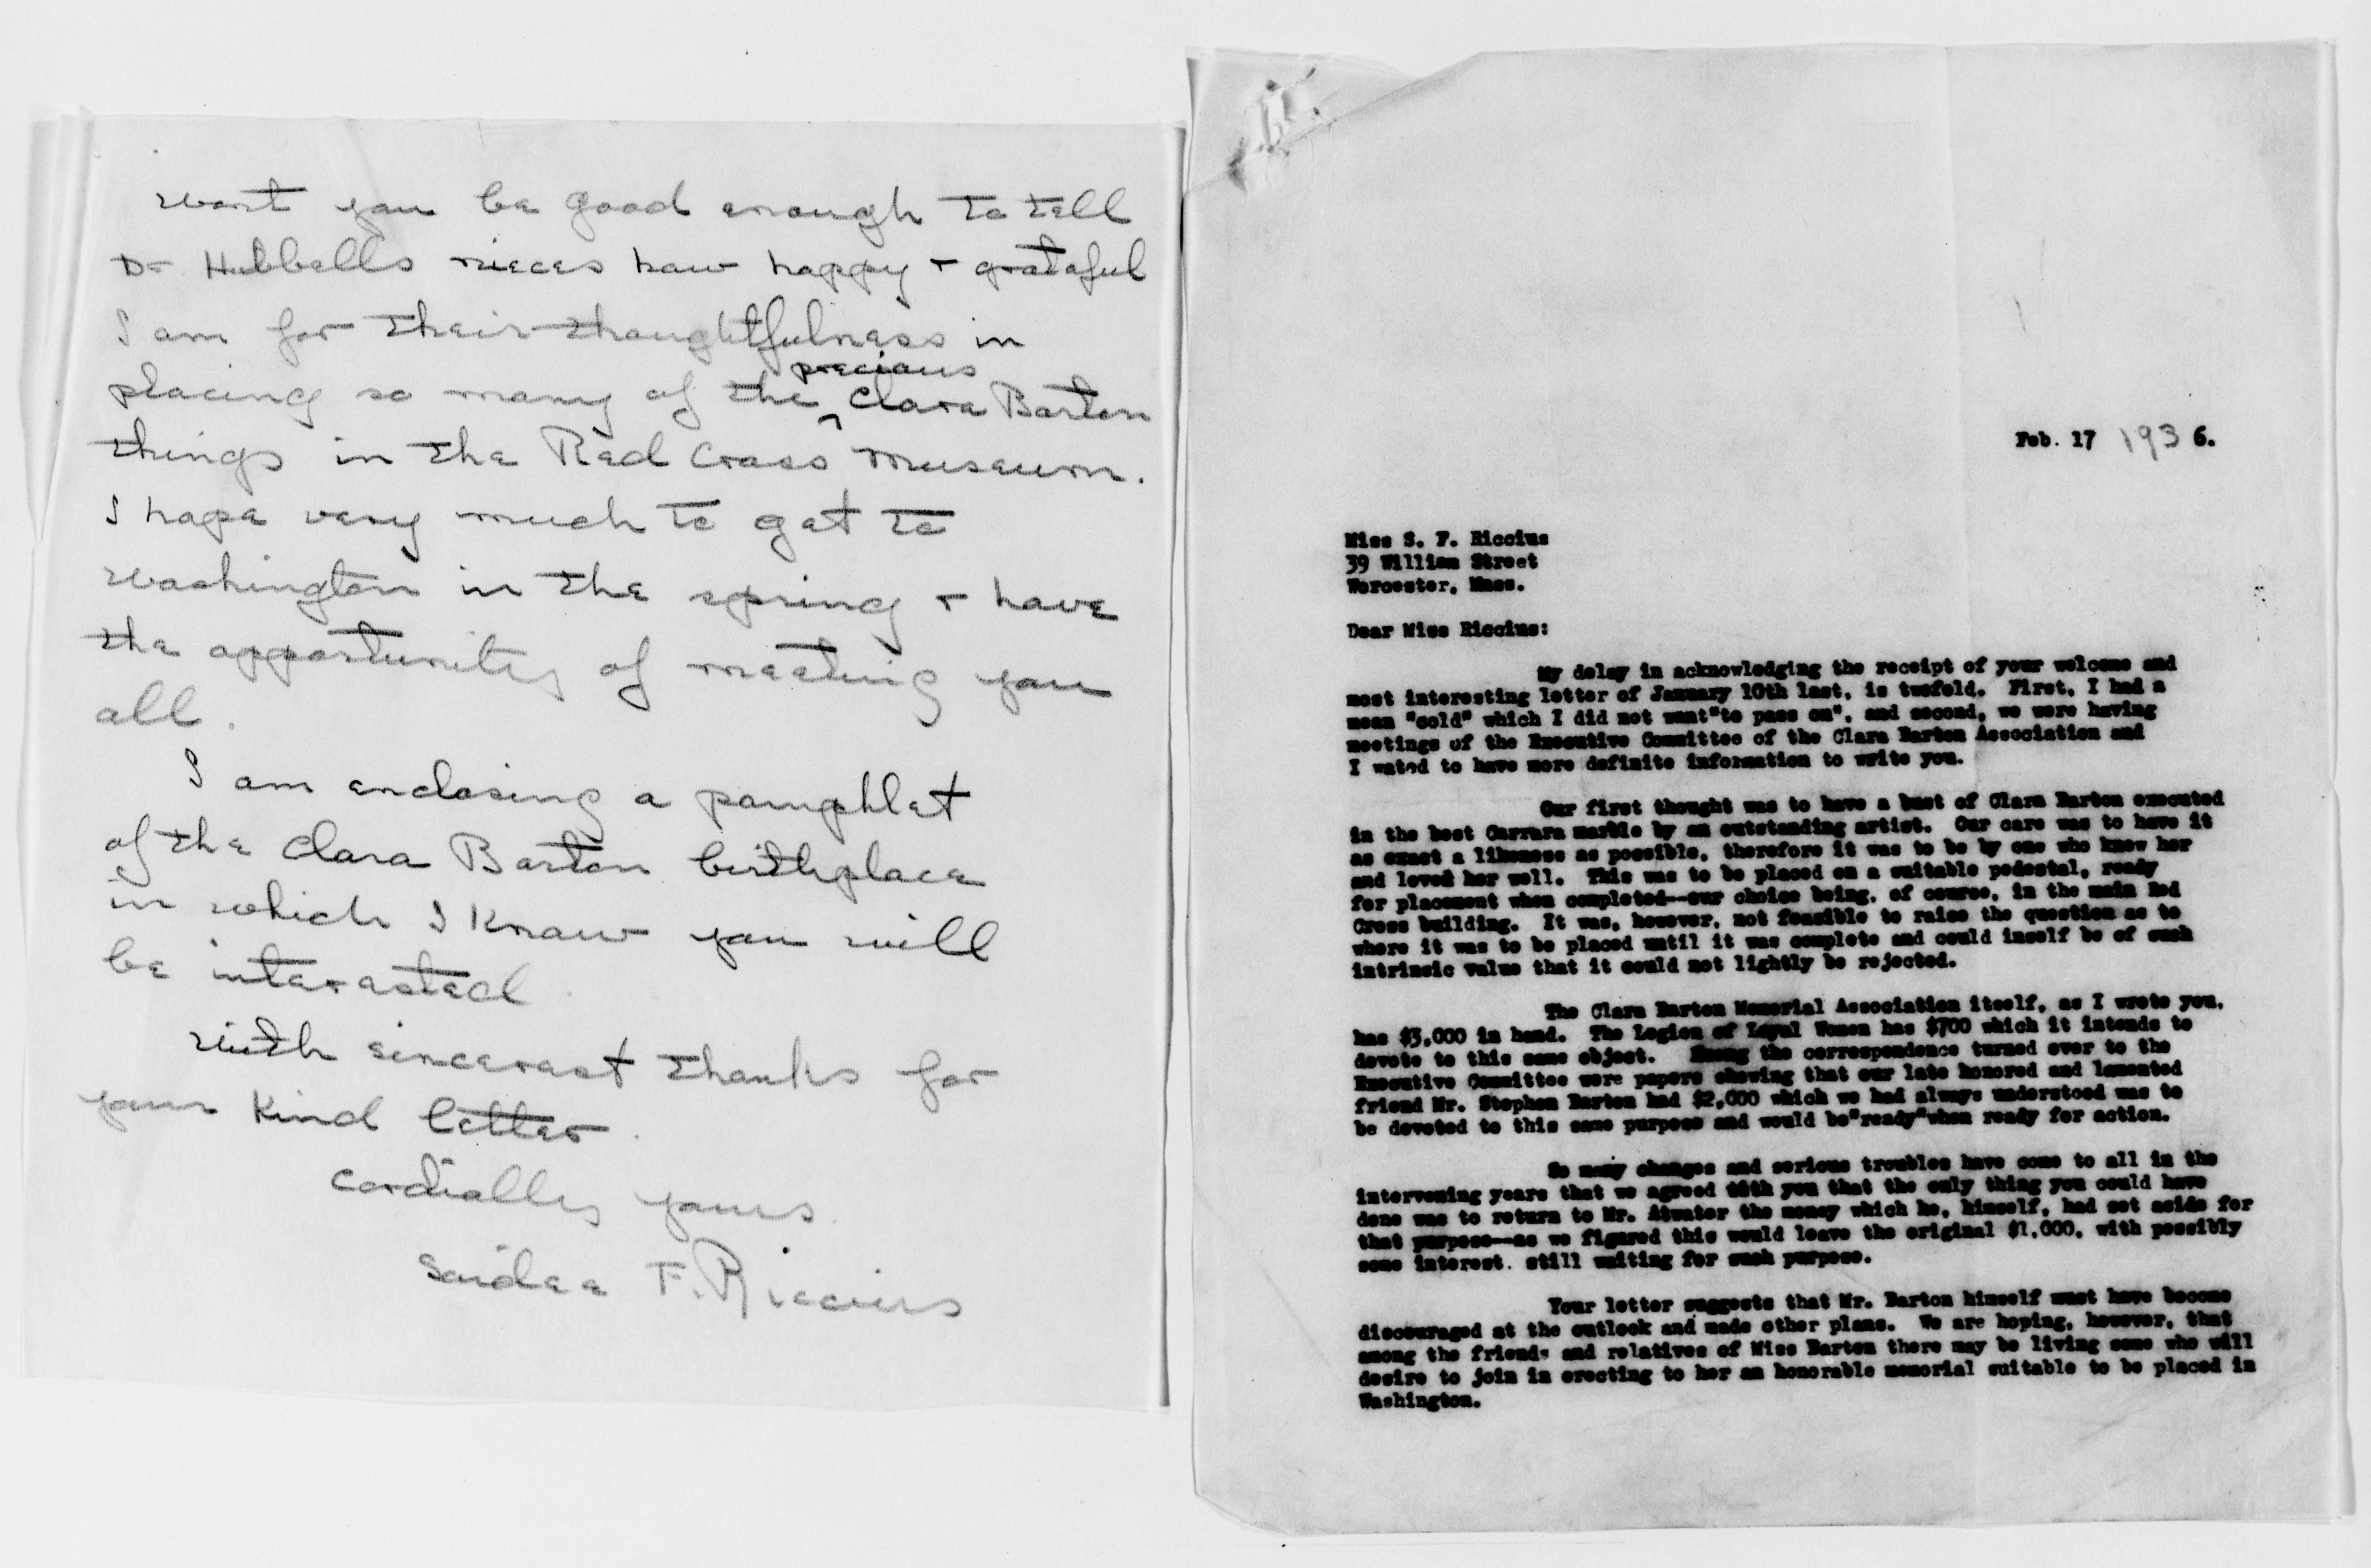 Wont you be good enough to tell
Dr Hubbells nieces how happy + grateful
I am for their thoughtfulness in
precious
placing so many of the ^ Clara Barton
things in the Red Cross Museum.
I hope very much to get to
Washington in the spring + have
the opportunity of meeting you
all.
I am enclosing a pamphlet
of the Clara Barton birthplace
in which I know you will
be interested.
With sincerest thanks for
your kind letter.
Cordially yours.
Saidee F. Riccius
Feb. 17 1936.
Miss S. F. Riccius
39 William Street
Worcester, Mass.
Dear Miss Riccius:
My delay in acknowledging the receipt of your welcome and
most interesting letter of January 10th last, is twofold. First, I had a
mean "cold" which I did not want"to pass on", and second, we were having
meetings of the Executive Committee of the Clara Barton Association and
I wated to have more definite information to write you.
Our first thought was to have a bust of Clara Barton executed
in the best Carrara marble by an outstanding artist. Our care was to have it
as exact a likeness as possible, therefore it was to be by one who knew her
and loved her well. This was to be placed on a suitable pedestal, ready
for placement when completed--our choice being, of course, in the main Red
Cross building. It was, however, not feasible to raise the question as to
where it was to be placed until it was complete and could inself be of such
intrinsic value that it could not lightly be rejected.
The Clara Barton Memorial Association itself, as I wrote you,
has $3,000 in hand. The Legion of Loyal Women has $700 which it intends to
devote to this same object. Among the correspondence turned over to the
Executive Committee were papers showing that our late honored and lamented
friend Mr. Stephen Barton had $2,000 which we had always understood was to
be devoted to this same purpose and would be"ready"when ready for action.
So many changes and serious troubles have come to all in the
intervening years that we agreed with you that the only thing you could have
done was to return to Mr. Atwater the money which he, himself, had set aside for
that purpose--as we figured this would leave the original $1,000, with possibly
some interest. still waiting for such purpose.
Your letter suggests that Mr. Barton himself must have become
discouraged at the outlook and made other plans. We are hoping, however, that
among the friends and relatives of Miss Barton there may be living some who will
desire to join in erecting to her an honorable memorial suitable to be placed in
Washington.